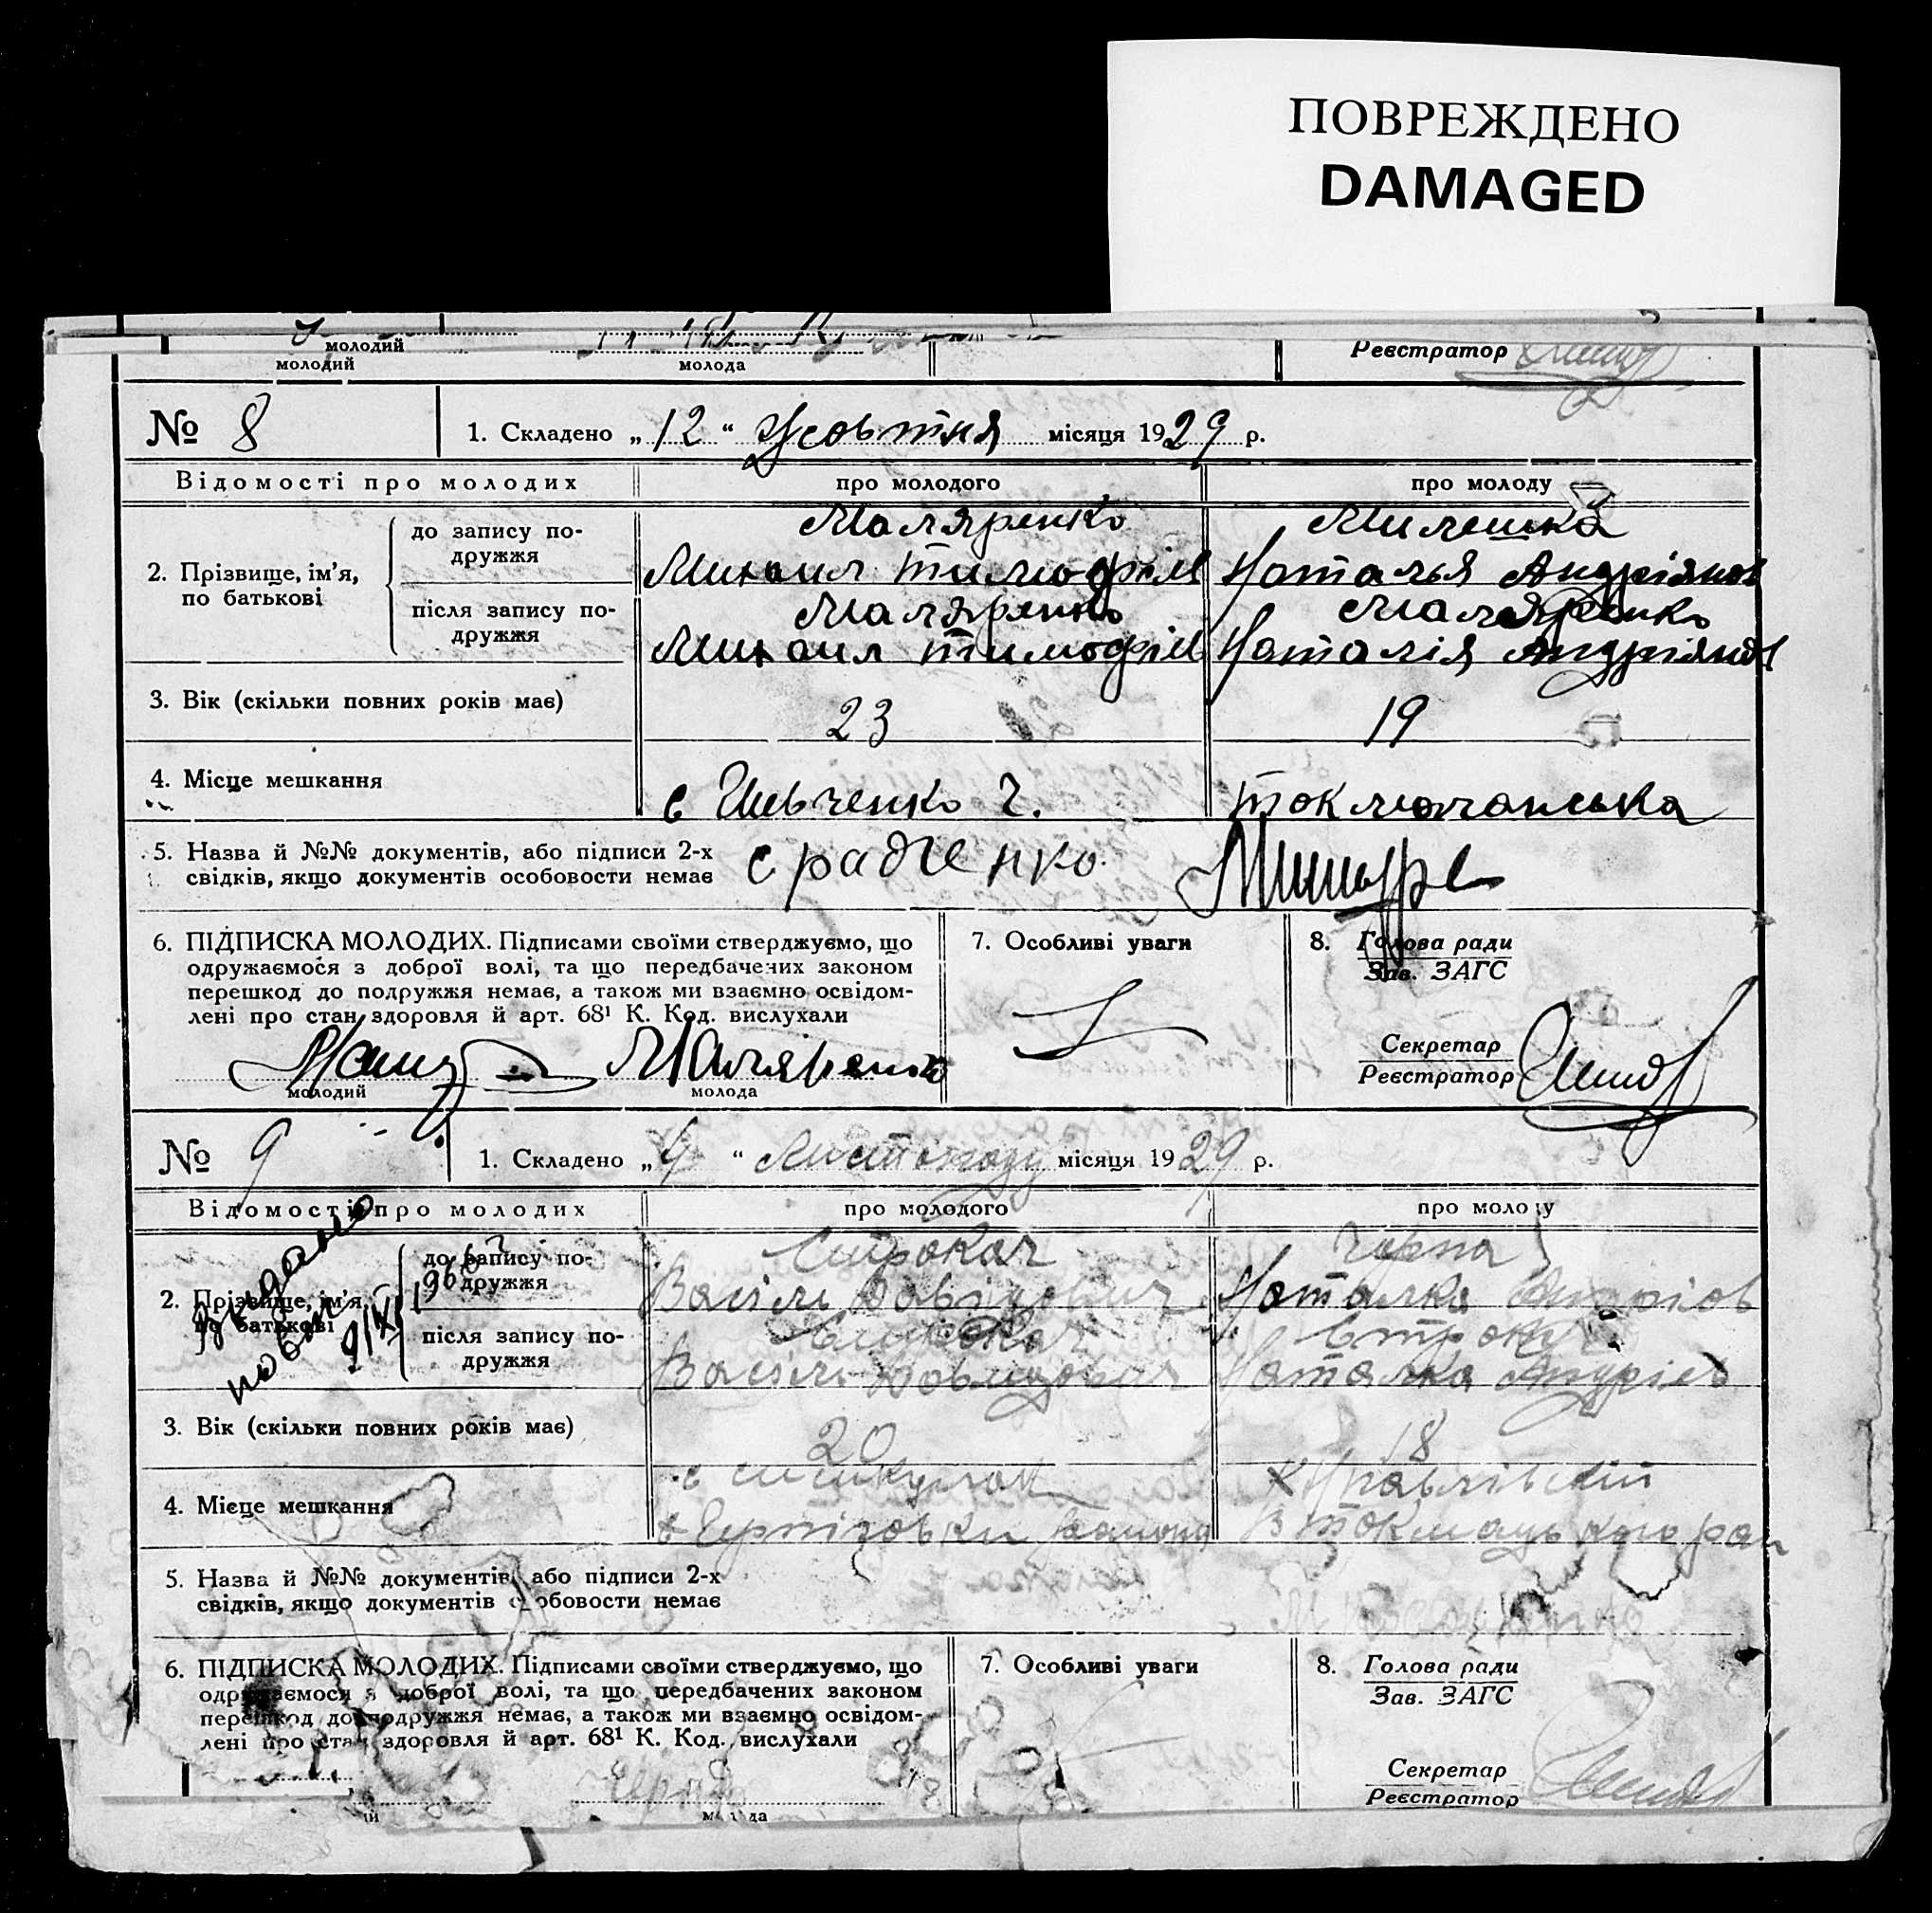 ПОВРЕЖДЕНО
DAMAGED
молодий
молодий
молода
Реєстратор
№ 8
1. Складено „ 12 “ Жовтня місяця 1929 р.
Відомості про молодих
про молодого
про молоду
2. Прізвище, ім'я, по батькові
до запису подружжя
Маляренко
Михаил Тимофіїв
Милешка
Наталья Андріянов
після запису подружжя
Маляренко
Михаил Тимофіїв
Маляренко
Наталія Андріянов
3. Вік (скільки повних років має)
23
19
4. Місце мешкання
с Шевченко
5. Назва й №№ документів, або підписи 2-х
свідків, якщо документів особовости немає
6. ПІДПИСКА МОЛОДИХ. Підписами своїми стверджуємо, що
одружаємося з доброї волі, та що передбачених законом
перешкод до подружжя немає, а також ми взаємно освідом-
лені про стан здоровля й арт. 68¹ К. Код. вислухали
молодий
Маляренко
молода
7. Особливі уваги
8. Голова ради
Зав. ЗАГС
Секретар
Реєстратор
№ 9
1. Складено „ 4 “ Листопаду місяця 1929 р.
Відомості про молодих
про молодого
про молоду
2. Прізвище, ім'я,
по батькові
до запису по-
дружжя
Строкач
Васіль
Чорна
Наталка
після запису по-
дружжя
Васіль
Наталка Андріев
3. Вік (скільки повних років має)
20
18
4. Місце мешкання
5. Назва й №№ документів, або підписи 2-х
свідків, якщо документів особовости немає
6. ПІДПИСКА МОЛОДИХ. Підписами своїми стверджуємо, що
одружаємося з доброї волі, та що передбачених законом
перешкод до подружжя немає, а також ми взаємно освідом-
лені про стан здоровля й арт. 68¹ К. Код. вислухали
молода
7. Особливі уваги
8. Голова ради
Зав. ЗАГС
Секретар
Реєстратор